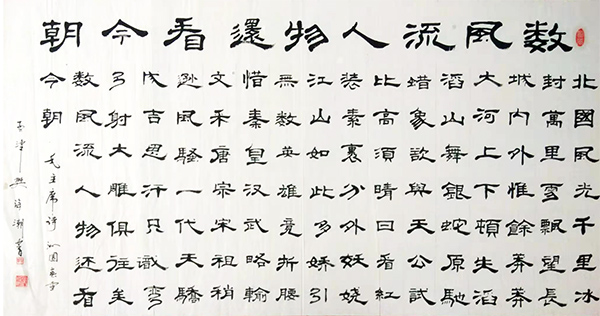 数风流人物還看今朝
北國風光千里冰
封萬里雪飄望長
城内外惟餘莽莽
大河上下頓失滔
滔山舞銀蛇原馳
蜡象欲與天公試
比高須晴日看紅
装素裹分外妖娆
江山如此多娇引
無数英雄竟折腰
惜秦皇汉武略輸
文采唐宗宋祖稍
逊風騷一代天驕
成吉思汗只識彎
弓射大雕俱往矣
数風流人物还看
今朝
毛主席詩沁园春雪